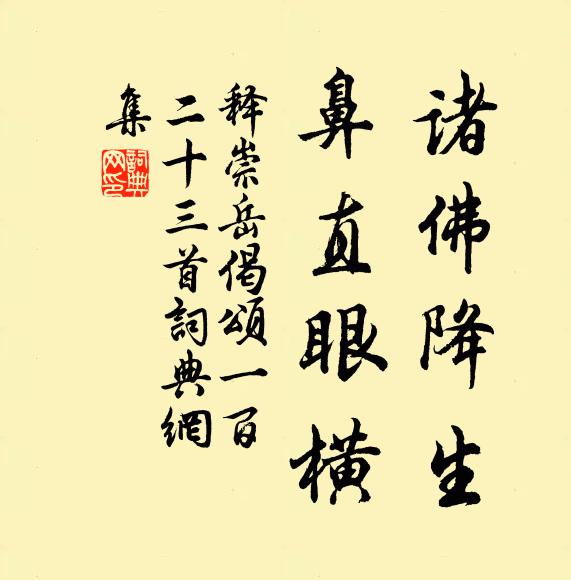 诸佛降生
鼻直眼横
释崇岳偈颂一百
二十三首詞典網
集
詞典
网印